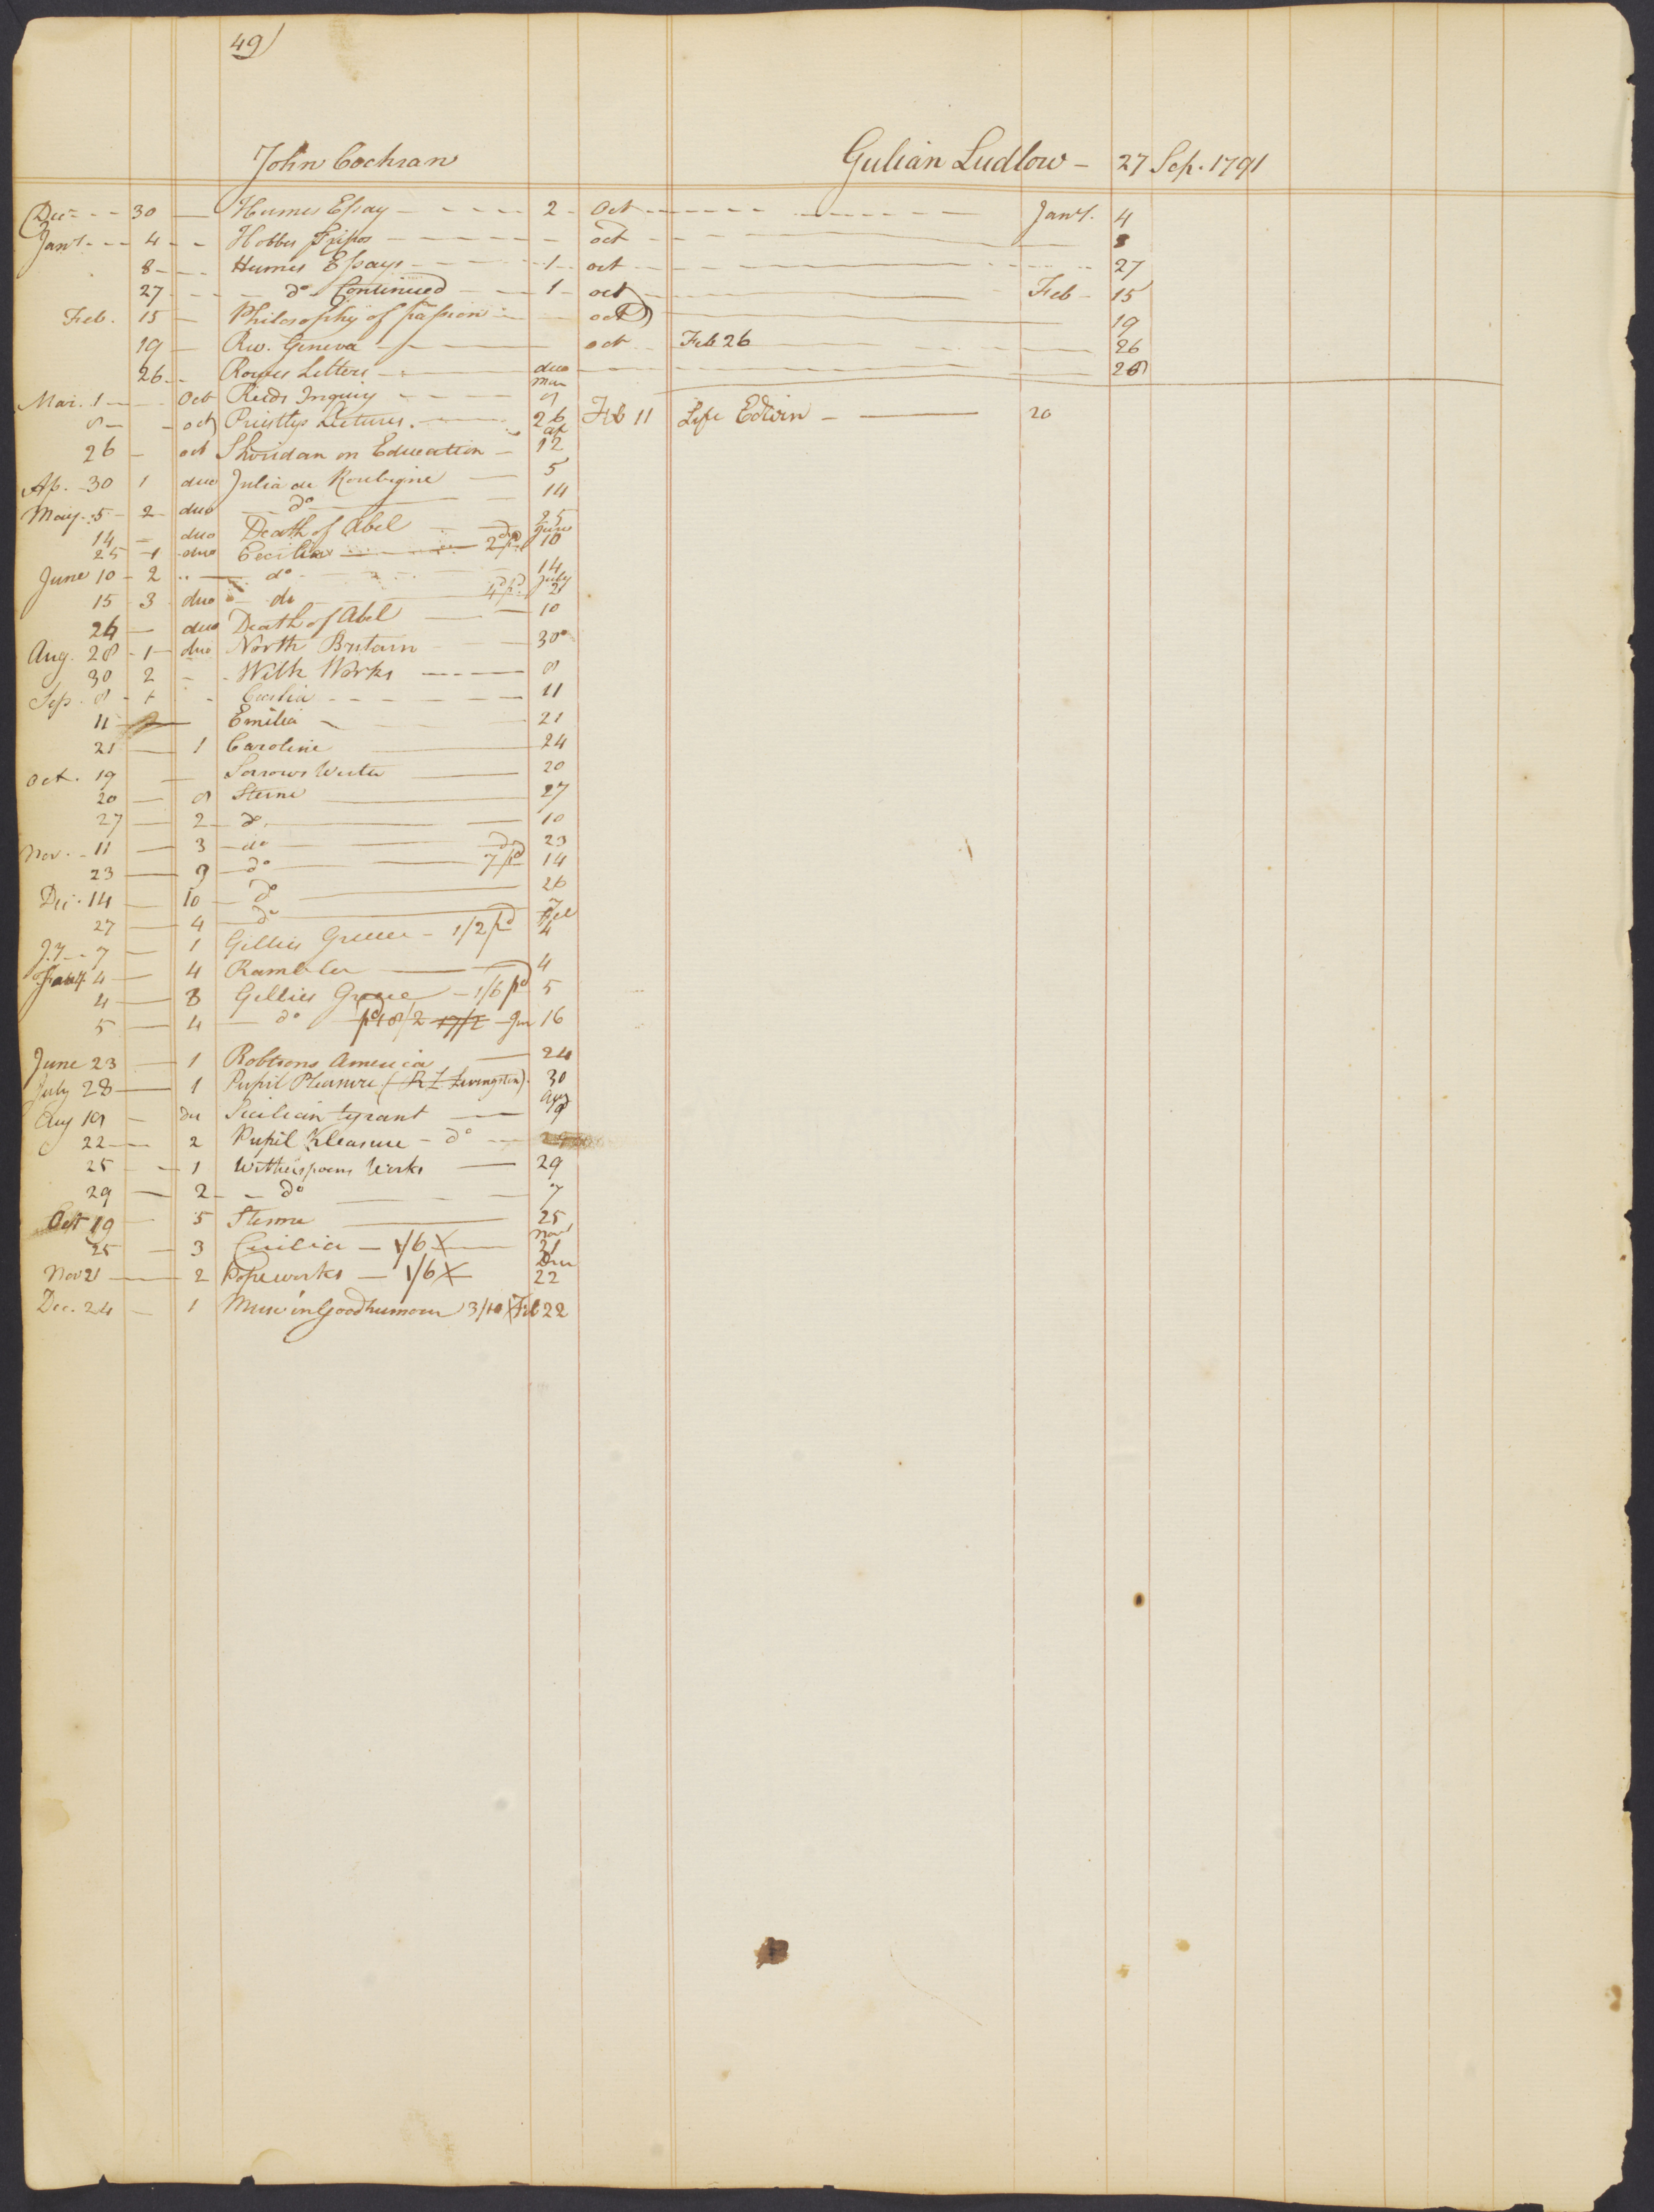 49)
John Cochran
Gulian Ludlow - 27 Sep. 1791
Dec - - - 30 — Humes Essay - - - - 2 - Oct - - - - - - Janʸ. 4
Janʸ. - - - 4 - - Hobbes - - - - - - oct - - - 8
8 - - - Humes Essays - - - 1 - - oct - - - 27
27 - - - dᵒ Continued - - 1 - oct - - - Feb - 15
Feb. 15 — Philosophy of passion - - oct - - - 19
19 — Rev. Geneva - - - oct - - Feb 26 - - - 26
26 - - Rowes Letters - - - duo - - - 26
Mar. 1 - - - Oct Reids Inquiry - - - - Mar 8
8 - - oct Priestlys Lectures. - - - 26 Feb 11 Life Edwin - — 20
26 - oct Sheridan on Education - ap 12
Ap. - 30 1 duo Julia de Roubigne — 5
May. 5 - 2 - duo — dᵒ — 14
14 - duo Death of Abel - - 25
25 - 1 - duo Cecilia — 2ᵈ pᵈ June 10
June 10 - 2 - — dᵒ - - - 14
15 - 3 duo — do — 4ᵈ pᵈ July 21
26 — duo Death of Abel — 10
Aug. 28 - 1 - duo North Britain - 30
30 2 - - Wilk Works - - - 8
Sep. 8 - - Cecilia - - - - 11
11 — Emilia - - - 21
21 — 1 Caroline — 24
Oct. 19 — Sorrows Werter — 20
20 — 8 Sterne — 27
27 — 2 — dᵒ. — 10
Nov. - 11 — 3 — do — 23
23 — 9 — dᵒ — 7ᵈ pᵈ 14
Dec. 14 — 10 — dᵒ — 26
27 — 4 — dᵒ — 7
J.y - - 7 — 1 Gillies Greece - 1/2 pᵈ Feb 4
4 — 4 Rambler — 4
4 — 3 Gillies Greece - 1/6 pᵈ 5
5 — 4 — dᵒ pᵈ 8/2 17/2 - Jun 16
June 23 — 1 Robtsons America — 24
July 28 — 1 Pupil Pleasure (R L Livingston). 30
Aug 19 — du Sicilian tyrant — Aug 9
22 — 2 Pupil Pleasure - dᵒ - -
25 - - 1 Witherspoons Works — 29
29 — 2 - - dᵒ - - - 7
Oct 19 — 5 Sterne — 25
25 — 3 Cecilia — 1/6 X — Nov 21
Nov 21 — 2 Pope works — 1/6 X Dec 22
Dec. 24 — 1 Muse in Good humour 3/10 X Feb 22